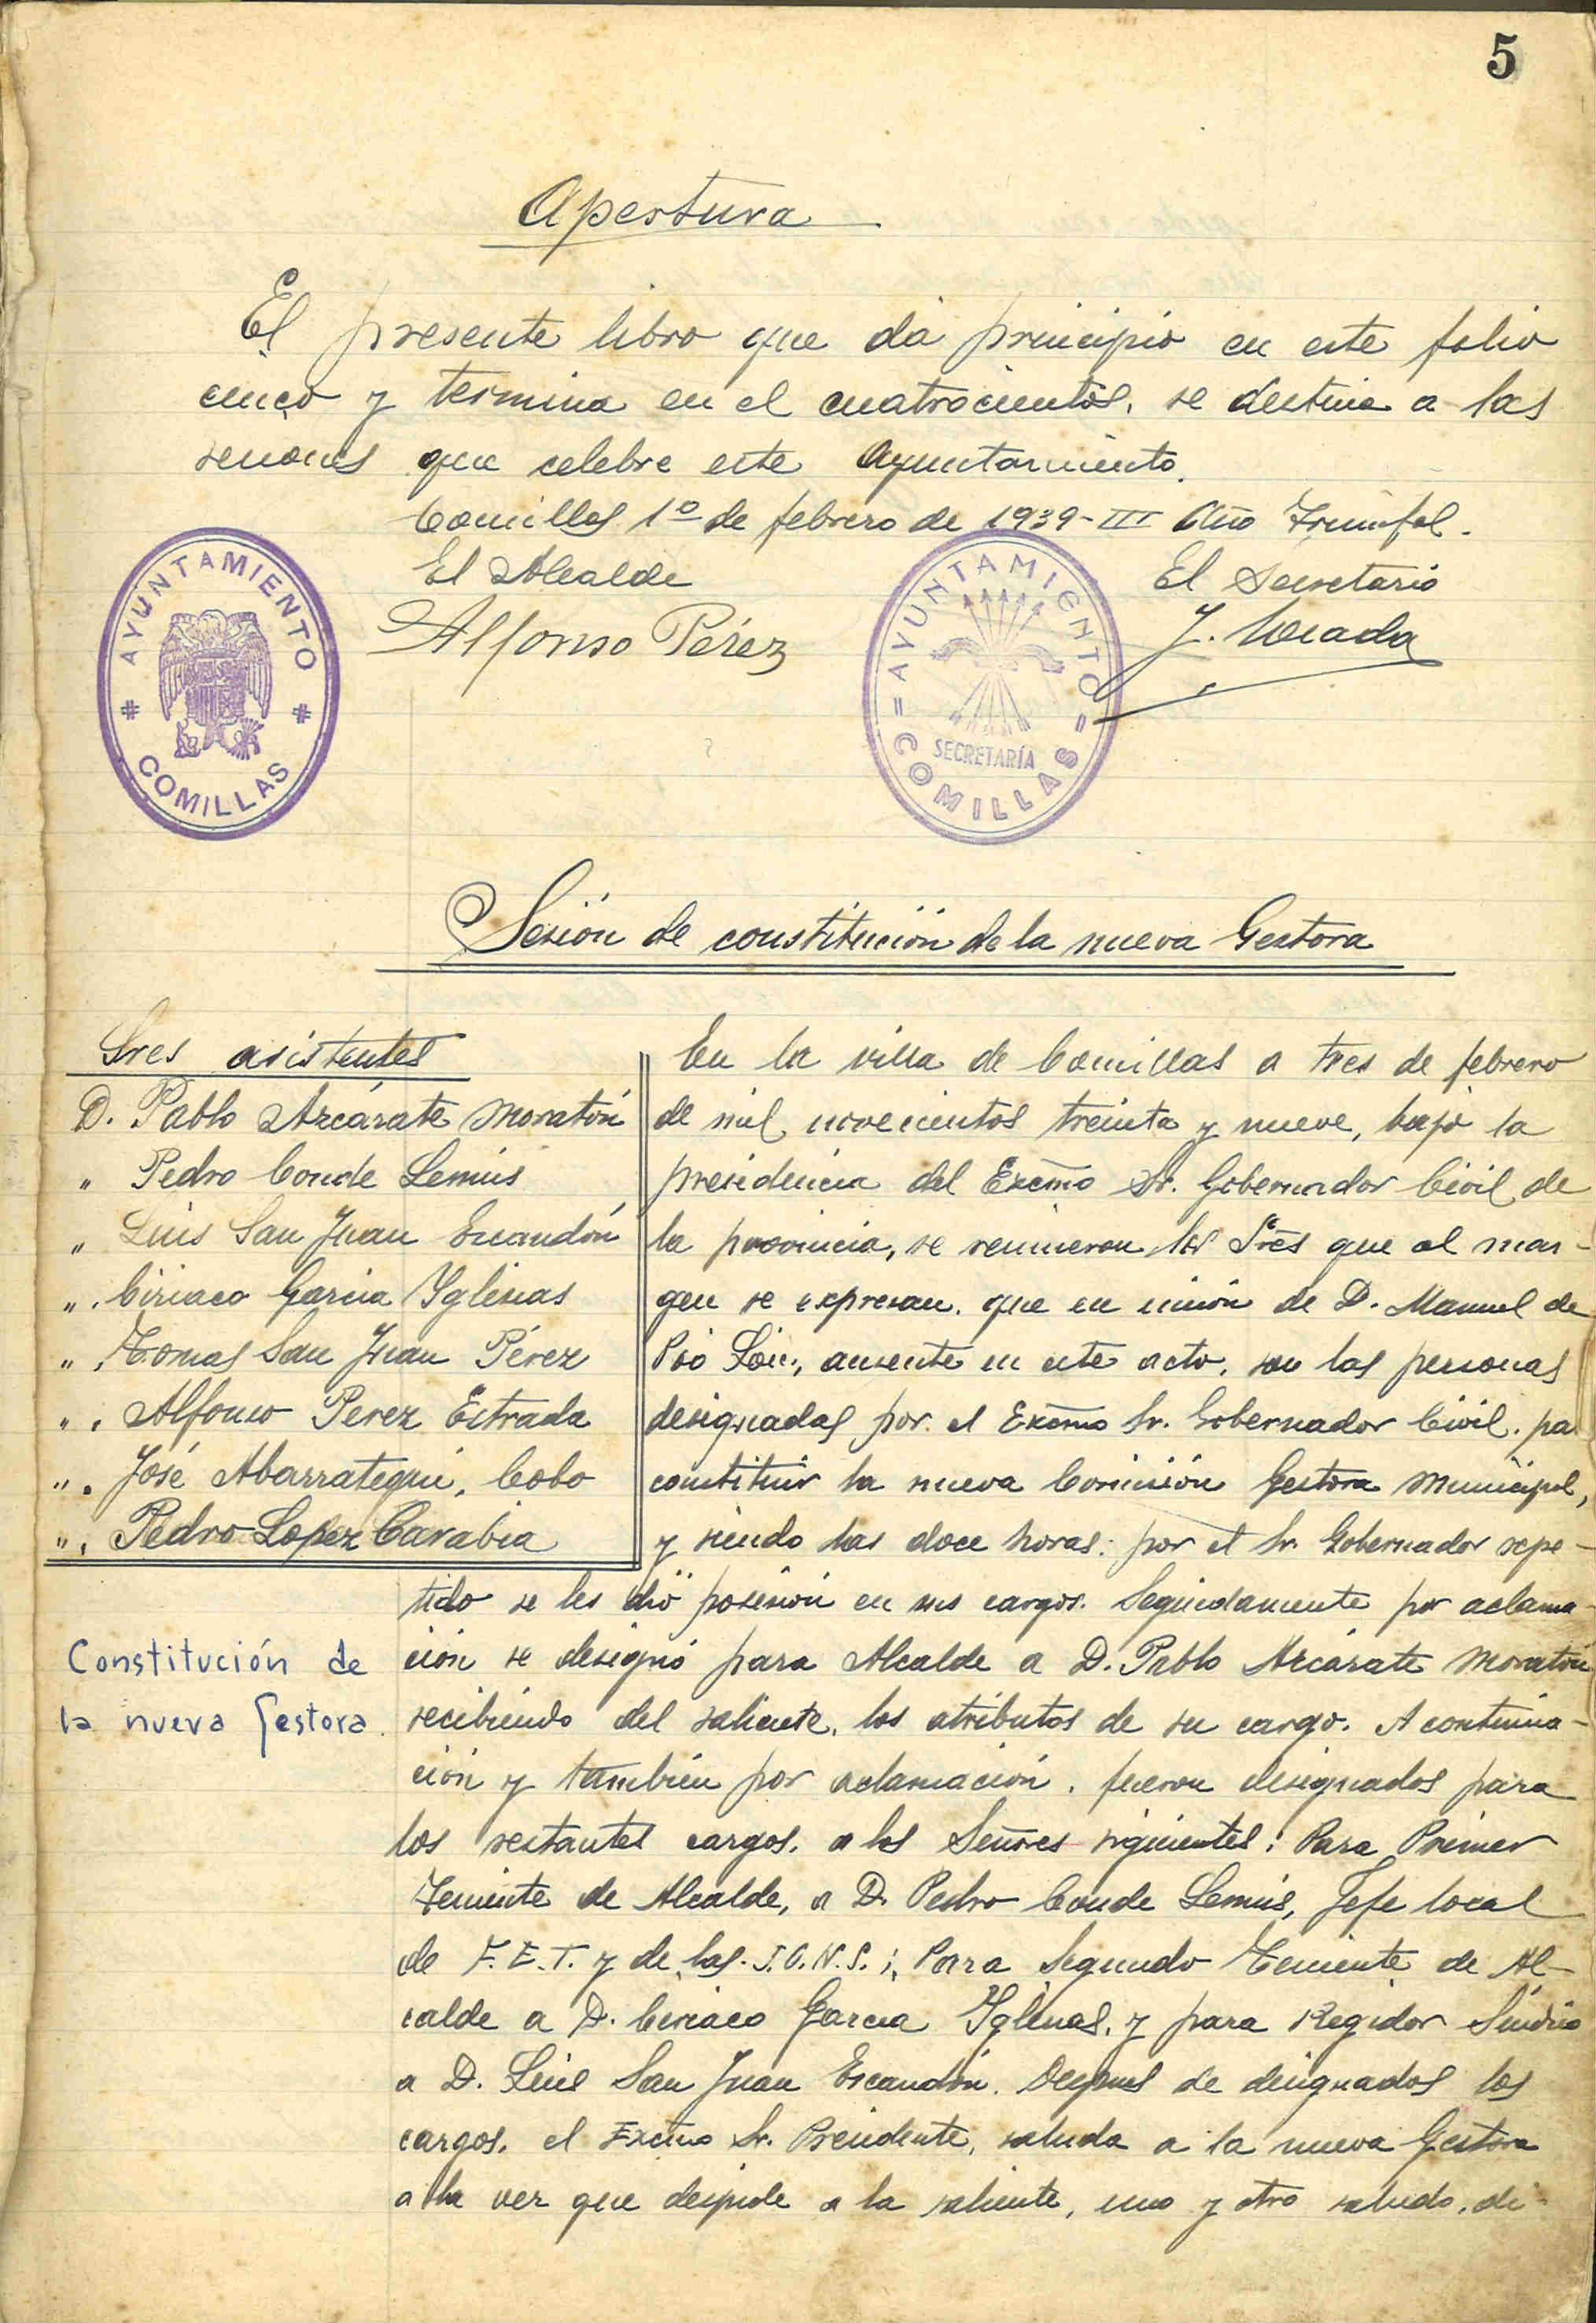 5
Apertura
El presente libro que da principio en este folio
cinco y termina en el cuatrocientos, se destina a las
sesiones que celebre este Ayuntamiento.
Comillas 1º de febrero de 1939-III Año Triunfal.
El Alcalde
El Secretario
Alfonso Pérez
AYUNTAMIENTO
COMILLAS
AYUNTAMIENTO
SECRETARÍA
COMILLAS
Sesión de constitución de la nueva Gestora
Sres asistentes
D. Pablo Azcárate Moratón
" Pedro Conde Lemus
" Luis San Juan Escandón
" Ciriaco Garcia Yglesias
" Tomas San Juan Pérez
" Alfonso Perez Estrada
" José Abarrategui, Cobo
" Pedro Lopez Carabia
En la villa de Comillas a tres de febrero
de mil novecientos treinta y nueve, bajo la
presidencia del Excmo Sr. Gobernador Civil de
la provincia, se reunieron los Sres que al mar-
gen se expresan, que en unión de D. Manuel de
ausente en este acto, son las personas
designadas por el Excmo Sr. Gobernador Civil, pa
constituir la nueva Comisión Gestora Municipal,
y siendo las doce horas: por el Sr. Gobernador repe-
tido se les dió posesión en sus cargos. Seguidamente por aclama-
ción se designó para Alcalde a D. Pablo Azcárate Moratón
recibiendo del saliente, los atributos de su cargo. A continua-
ción y también por aclamación, fueron designados para
los restantes cargos, a los Señores siguientes: Para Primer
Teniente de Alcalde, a D. Pedro Conde Lemus, Jefe local
de F.E.T. y de las J.O.N.S.; Para Segundo Teniente de Al-
calde a D. Ciriaco Garcia Yglesias, y para Regidor Síndico
a D. Luis San Juan Escandón. Después de designados los
cargos, el Excmo Sr. Presidente, saluda a la nueva Gestora
a la vez que despide a la saliente, uno y otro saludo, di-
Constitución de
la nueva Gestora.